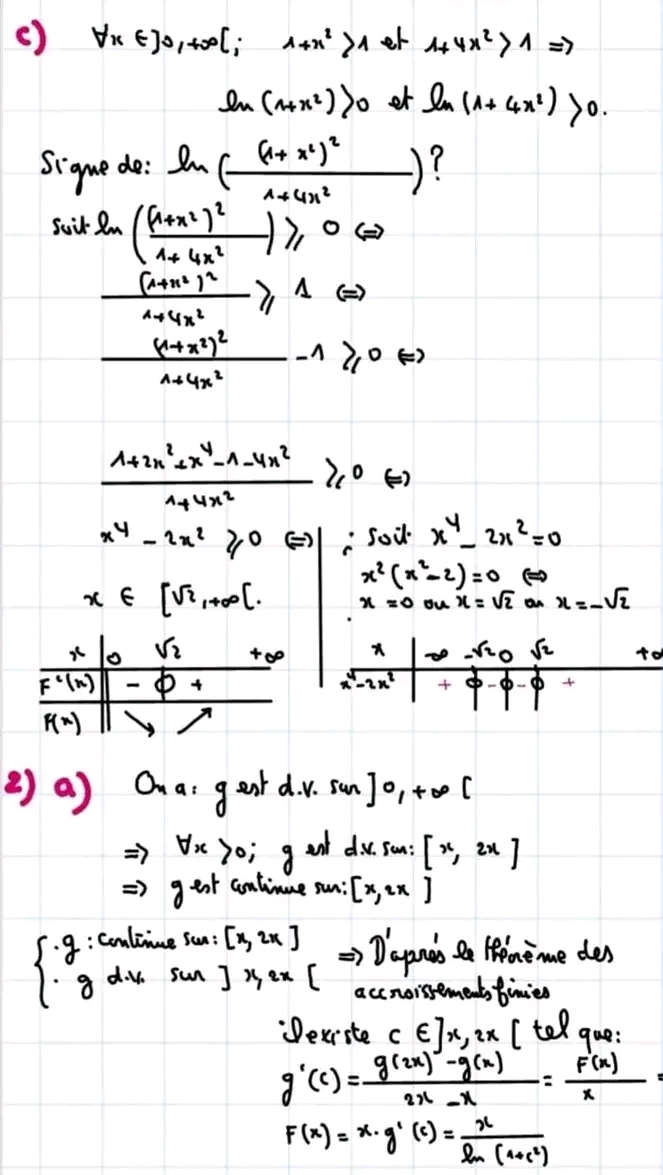 c) ∀x ∈ ]0,+∞[ ; 1+x² > 1 et 1+4x² > 1 =>
ln (1+x²) > 0 et ln (1+4x²) > 0.
Signe de : ln ( (1+x²)² / 1+4x² ) ?
soit ln ( (1+x²)² / 1+4x² ) ⩾ 0 ⇔
(1+x²)² / 1+4x² ⩾ 1 ⇔
(1+x²)² / 1+4x² - 1 ⩾ 0 ⇔
1+2x²+x⁴-1-4x² / 1+4x² ⩾ 0 ⇔
x⁴ - 2x² ⩾ 0 ⇔
x ∈ [√2,+∞[.
; soit x⁴ - 2x² = 0
x²(x²-2) = 0 ⇔
x = 0 ou x = √2 ou x = -√2
x | 0 √2 +∞
F'(x) || - 0 +
F(x) || ↘ ↗
x | -∞ -√2 0 √2 +∞
x⁴-2x² | + 0 - 0 - 0 +
2) a) On a : g est d.v. sur ]0,+∞[
=> ∀x > 0; g est d.v. sur : [x, 2x]
=> g est continue sur : [x,2x]
{ . g : continue sur : [x, 2x]
. g d.v. sur ]x,2x[
=> D'après le théorème des
accroissements finies
il existe c ∈ ]x,2x[ tel que :
g'(c) = g(2x) - g(x) / 2x - x = F(x) / x =
F(x) = x. g'(c) = x / ln (1+c²)